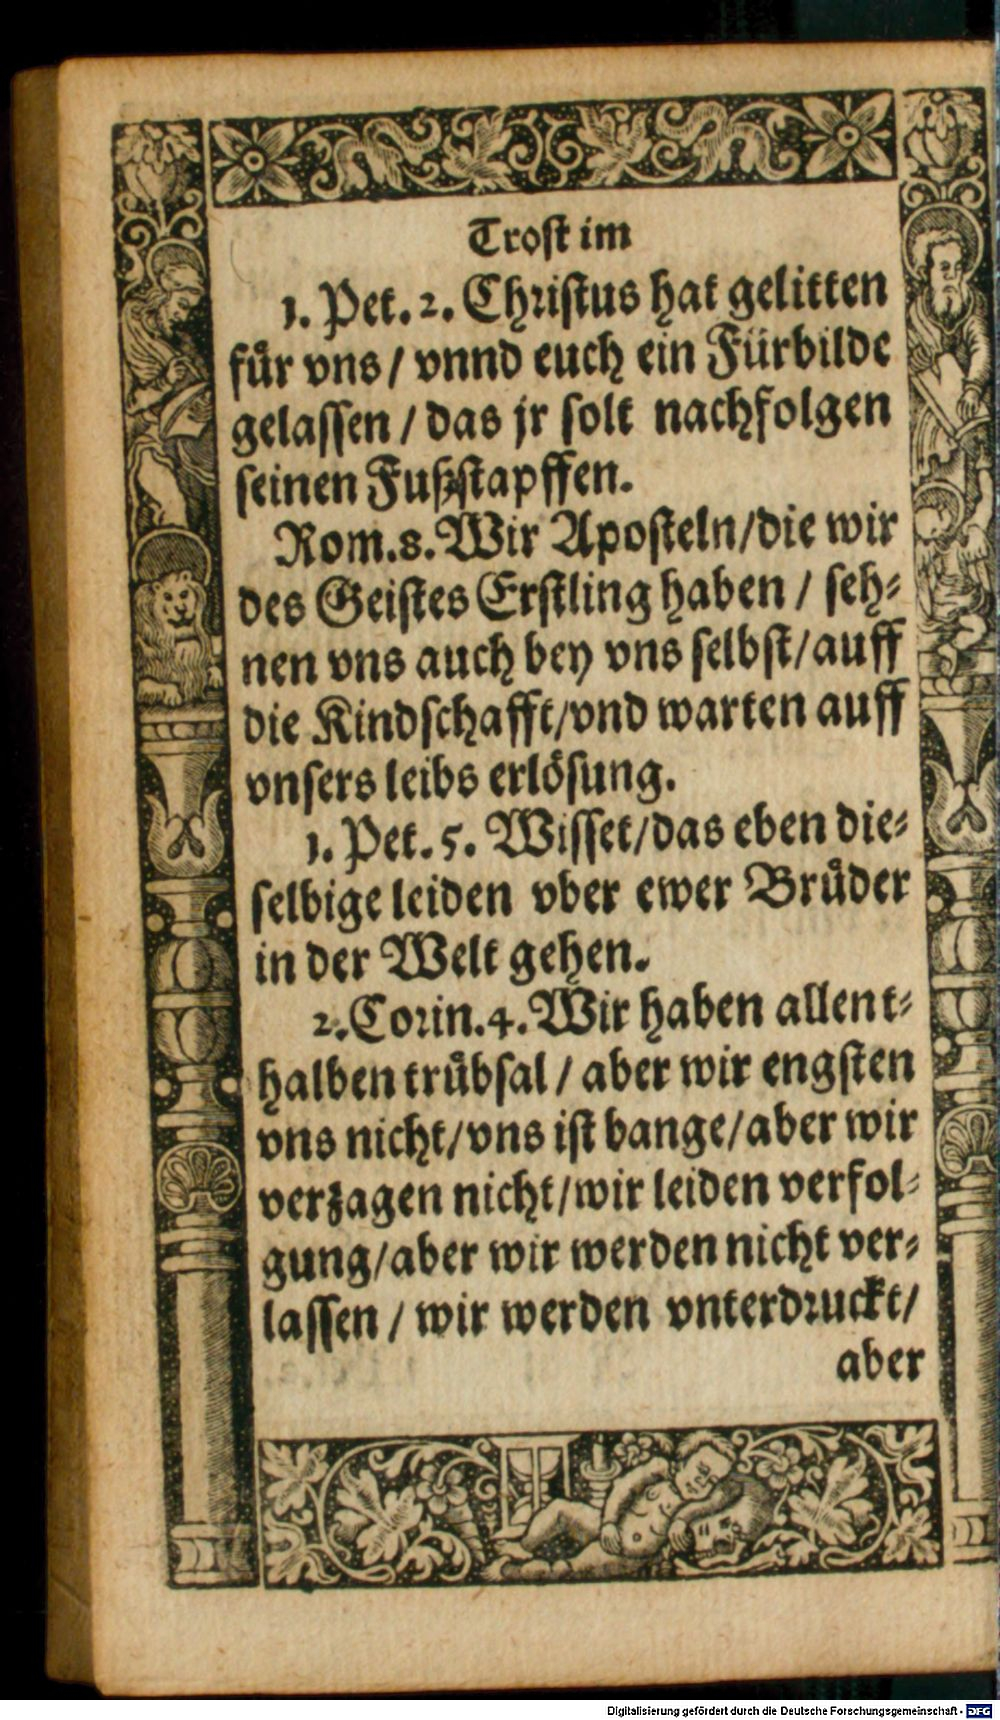 Trost im
1. Pet. 2. Christus hat gelitten
fuͤr vns / vnnd euch ein Fürbilde
gelassen / das jr solt nachfolgen
seinen Fußstapffen.
Rom. 8. Wir Aposteln / die wir
des Geistes Erstling haben / seh-
nen vns auch bey vns selbst / auff
die Kindschafft / vnd warten auff
vnsers leibs erlösung.
1. Pet. 5. Wisset / das eben die-
selbige leiden vber ewer Bruͤder
in der Welt gehen.
2. Corin. 4. Wir haben allent-
halben truͤbsal / aber wir engsten
vns nicht / vns ist bange / aber wir
verzagen nicht / wir leiden verfol-
gung / aber wir werden nicht ver-
lassen / wir werden vnterdruckt /
aber
Digitalisierung gefördert durch die Deutsche Forschungsgemeinschaft - DFG